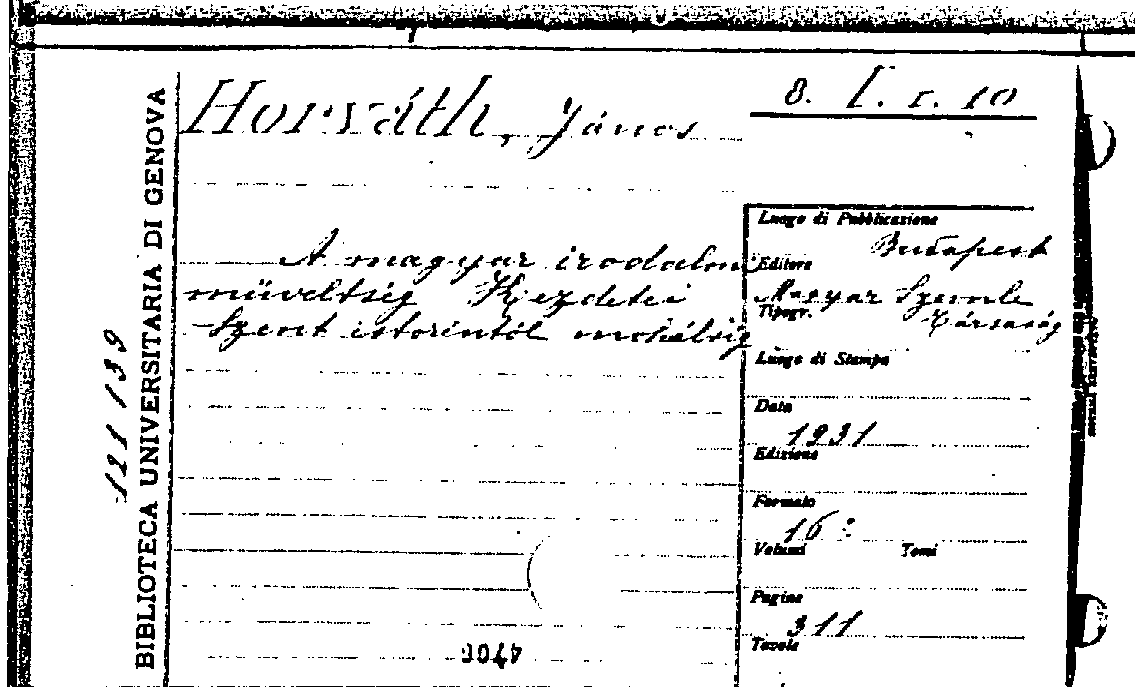 8. I. c. 10
Horváth, János
BIBLIOTECA UNIVERSITARIA DI GENOVA
121 139
A magyar irodalom
műveltség Kezdetei
Szent istorintól mohácsig
Luogo di Pubblicazione
Budapest
Editore
Magyar Szemle
Társaság
Tipogr.
Luogo di Stampa
Data
1931
Edizione
Formato
16º
Volumi Tomi
Pagine
311
Tavole